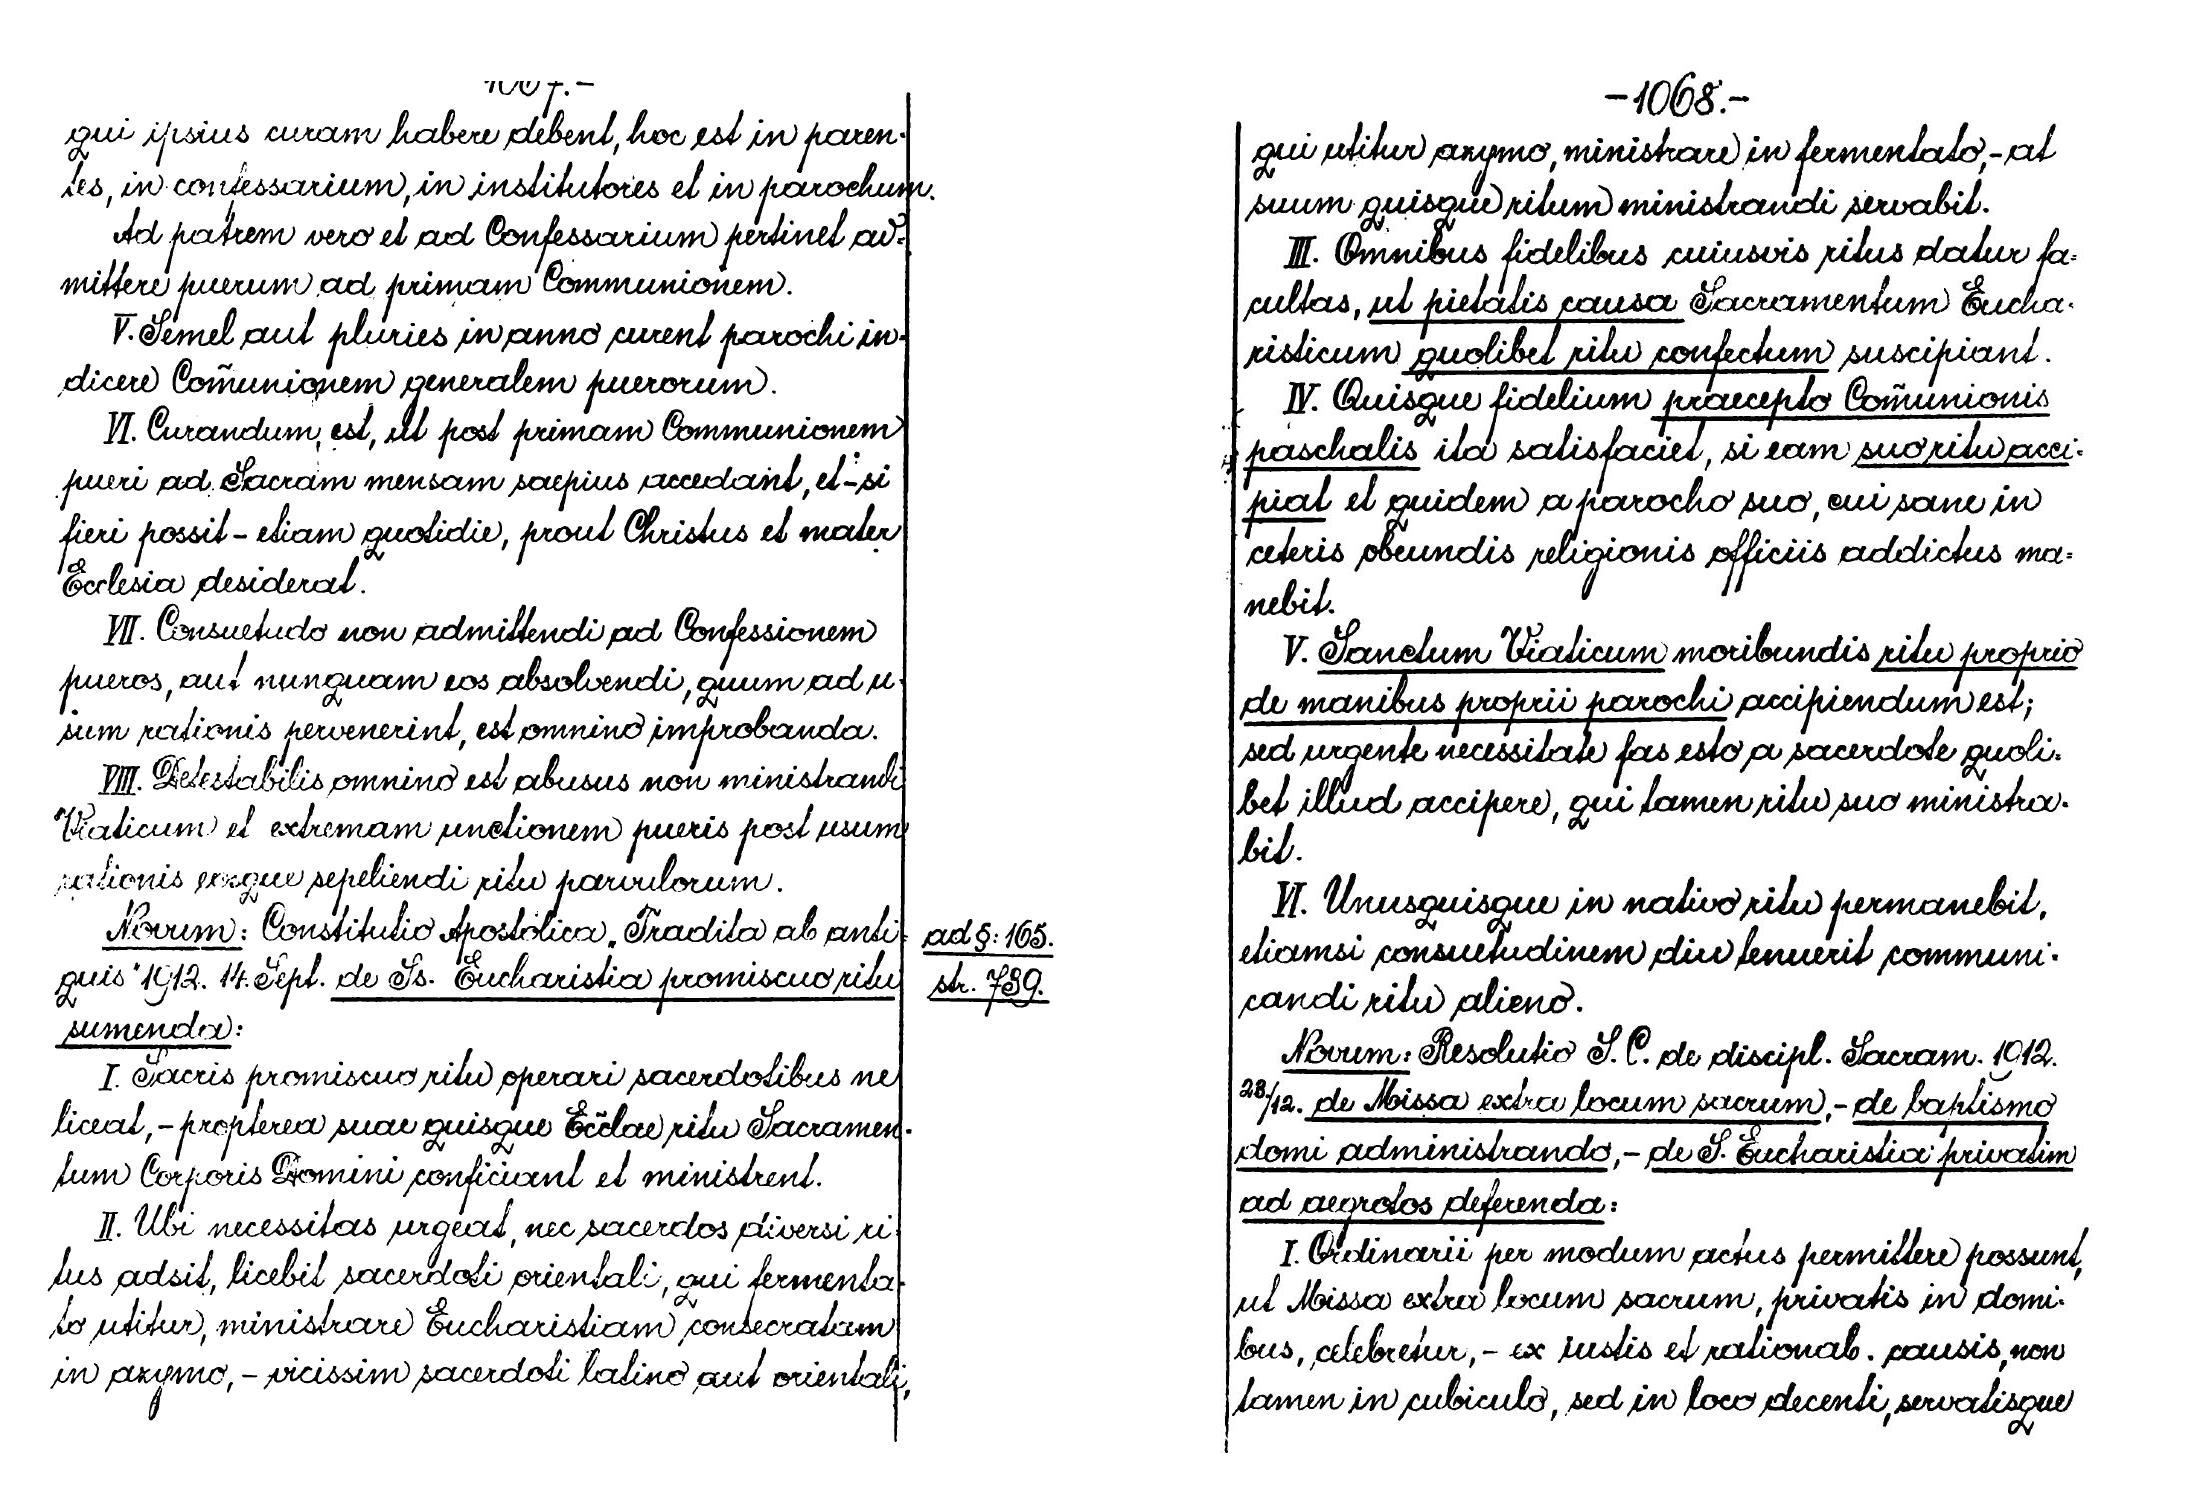 1067.-
qui ipsius curam habere debent, hoc est in paren-
tes, in confessarium, in institutores et in parochum.
Ad patrem vero et ad Confessarium pertinet ad-
mittere puerum ad primam Communionem.
V. Semel aut pluries in anno curent parochi in-
dicere Com̃unionem generalem puerorum.
VI. Curandum est, ut post primam Communionem
pueri ad Sacram mensam saepius accedant, et - si
fieri possit - etiam quotidie, prout Christus et mater
Ecclesia desiderat.
VII. Consuetudo non admittendi ad Confessionem
pueros, aut nunquam eos absolvendi, quum ad u-
sum rationis pervenerint, est omnino improbanda.
VIII. Detestabilis omnino est abusus non ministrandi
Viaticum et extremam unctionem pueris post usum
rationis eosque sepeliendi ritu parvulorum.
Novum: Constitutio Apostolica „Tradita ab anti-
quis" 1912. 14. Sept. de Ss. Eucharistia promiscuo ritu
sumenda:
ad §: 165.
str. 739.
I. Sacris promiscuo ritu operari sacerdotibus ne
liceat, - propterea suae quisque Ecc̃lae ritu Sacramen-
tum Corporis Domini conficiant et ministrent.
II. Ubi necessitas urgeat, nec sacerdos diversi ri-
tus adsit, licebit sacerdoti orientali, qui fermenta-
to utitur, ministrare Eucharistiam consecratam
in azymo, - vicissim sacerdoti latino aut orientali,
-1068.-
qui utitur azymo, ministrare in fermentato, - at
suum quisque ritum ministrandi servabit.
III. Omnibus fidelibus cuiusvis ritus datur fa-
cultas, ut pietatis causa Sacramentum Eucha-
risticum quolibet ritu confectum suscipiant.
IV. Quisque fidelium praecepto Com̃unionis
paschalis ita satisfaciet, si eam suo ritu acci-
piat et quidem a parocho suo, cui sane in
ceteris obeundis religionis officiis addictus ma-
nebit.
V. Sanctum Viaticum moribundis ritu proprio
de manibus proprii parochi accipiendum est;
sed urgente necessitate fas esto a sacerdote quoli-
bet illud accipere, qui tamen ritu suo ministra-
bit.
VI. Unusquisque in nativo ritu permanebit,
etiamsi consuetudinem diu tenuerit communi-
candi ritu alieno.
Novum: Resolutio S. C. de discipl. Sacram. 1912.
23/12. de Missa extra locum sacrum, - de baptismo
domi administrando, - de S. Eucharistia privatim
ad aegrotos deferenda:
I. Ordinarii per modum actus permittere possunt,
ut Missa extra locum sacrum, privatis in domi-
bus, celebretur, - ex iustis et rationab. causis, non
tamen in cubiculo, sed in loco decenti, servatisque